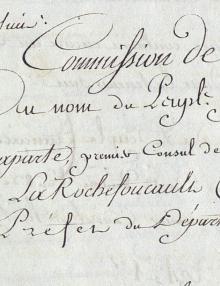 Commission de
Au nom du Peupl
aparte, premier Consul de
La Rochefoucault
Préfet du Départ